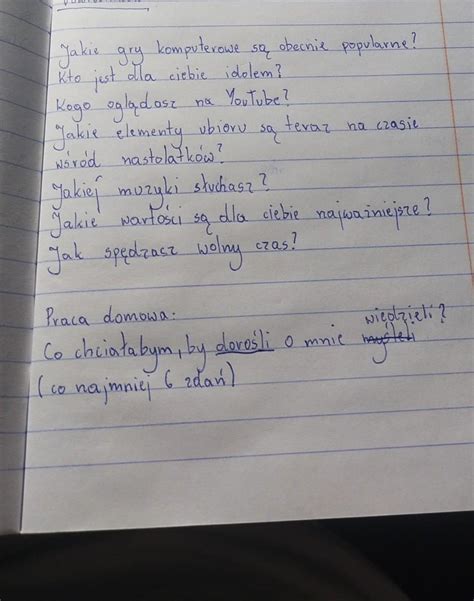 Jakie gry komputerowe są obecnie popularne?
Kto jest dla ciebie idolem?
Kogo oglądasz na YouTube?
Jakie elementy ubioru są teraz na czasie
wśród nastolatków?
Jakiej muzyki słuchasz?
Jakie wartości są dla ciebie najważniejsze?
Jak spędzasz wolny czas?
Praca domowa:
Co chciałabym, by dorośli o mnie myśleli wiedzieli?
(co najmniej 6 zdań)